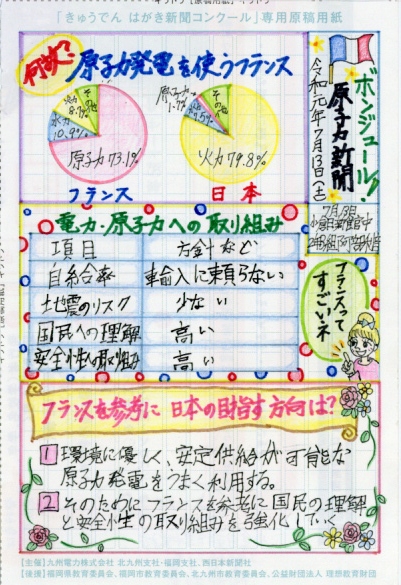 「きゅうでん はがき新聞コンクール」専用原稿用紙
何故?
原子力発電を使うフランス
ボンジュール!
原子力新聞
令和元年7月13日(土)
その他
火力
8.7%
水力
10.9%
原子力73.1%
フランス
その他
原子力
1.7%
水力
7.5%
火力79.8%
日本
電力・原子力への取り組み
項目
方針など
自給率
輸入に頼らない
地震のリスク
少ない
国民への理解
高い
安全性への取り組み
高い
7月13日
フランスって
すごいネ
フランスを参考に 日本の目指す方向は?
1 環境に優しく、安定供給が可能な
原子力発電をうまく利用する。
2 そのためにフランスを参考に国民の理解
と安全性の取り組みを強化していく
【主催】九州電力株式会社 北九州支社・福岡支社、西日本新聞社
【後援】福岡県教育委員会、福岡市教育委員会、北九州市教育委員会、公益財団法人 理想教育財団